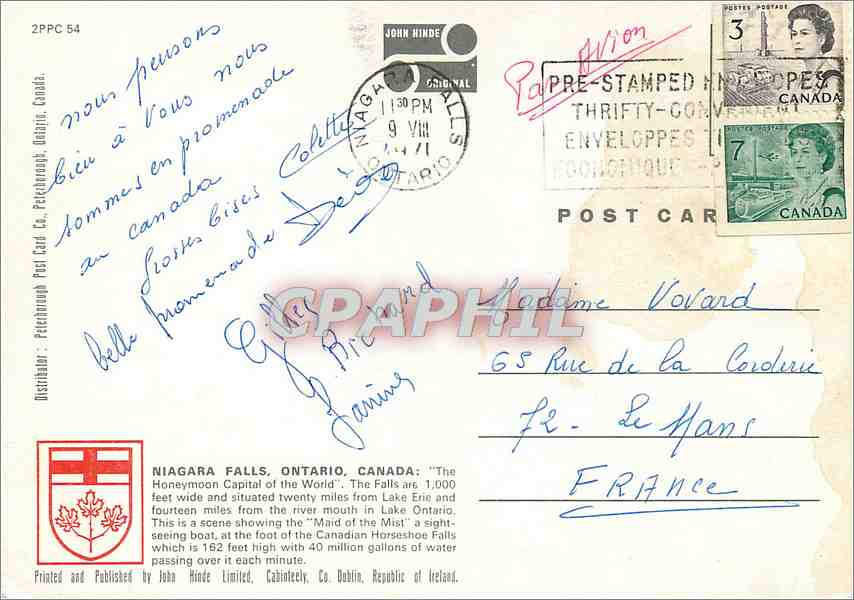 2PPC 54
JOHN HINDE
ORIGINAL
NIAGARA FALLS
11 30 PM
9 VIII
1971
ONTARIO
Par Avion
PRE-STAMPED ENVELOPES
THRIFTY-CONVENIENT
ENVELOPPES
ECONOMIQUE
POSTES POSTAGE
3
CANADA
POSTES POSTAGE
7
CANADA
POST CAR
nous pensons
bien à vous nous
sommes en promenade
au canada
Grosses bises Colette
belle promenade
Gilles
Richard
Janine
Madame Vovard
65 Rue de la Corderie
72- Le Mans
FRANCE
CPAPHIL
Distributor: Peterborough Post Card Co., Peterborough, Ontario, Canada.
NIAGARA FALLS, ONTARIO, CANADA: "The
Honeymoon Capital of the World". The Falls are 1,000
feet wide and situated twenty miles from Lake Erie and
fourteen miles from the river mouth in Lake Ontario.
This is a scene showing the "Maid of the Mist" a sight-
seeing boat, at the foot of the Canadian Horseshoe Falls
which is 162 feet high with 40 million gallons of water
passing over it each minute.
Printed and Published by John Hinde Limited, Cabinteely, Co. Dublin, Republic of Ireland.